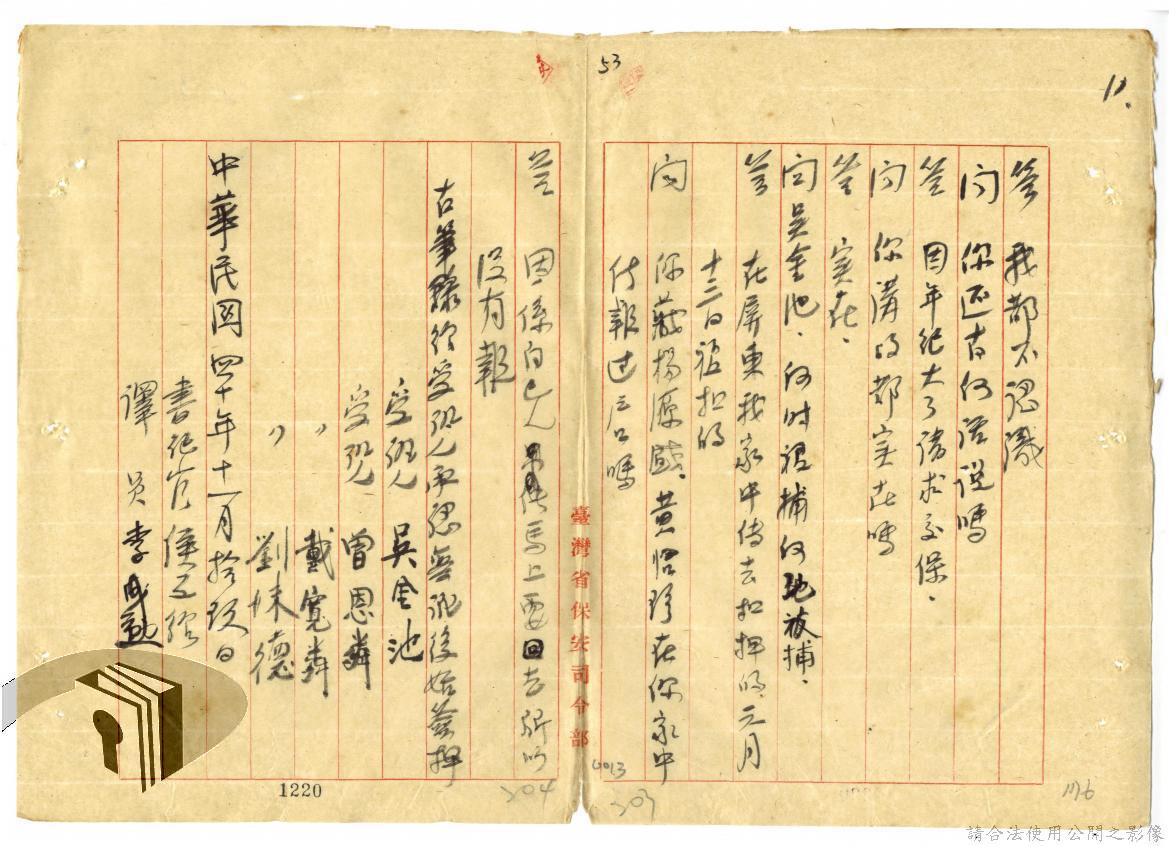 11.
53
答 我都不認識
問 你还有何話說嗎
答 因年纪大了請求交保.
問 你講的都实在嗎
答 实在.
問 吳金池.何時被捕何地被捕.
答 在屏東我家中傳去扣押的.元月
十三日被扣的
問 你藏楊原盛.黃培珍在你家中
有報过戶口嗎
臺灣省保安司令部
答 因係自己人 馬上要回去所以
沒有報
右筆錄經受訊人承認無訛後始簽押
受訊人 吳金池
受訊人 曾恩麟
〃 戴寬麟
〃 劉妹德
中華民國四十年十一月拾玖日
書記官 侯
譯員 李成
0013
1220
204
203
176
請合法使用公開之影像